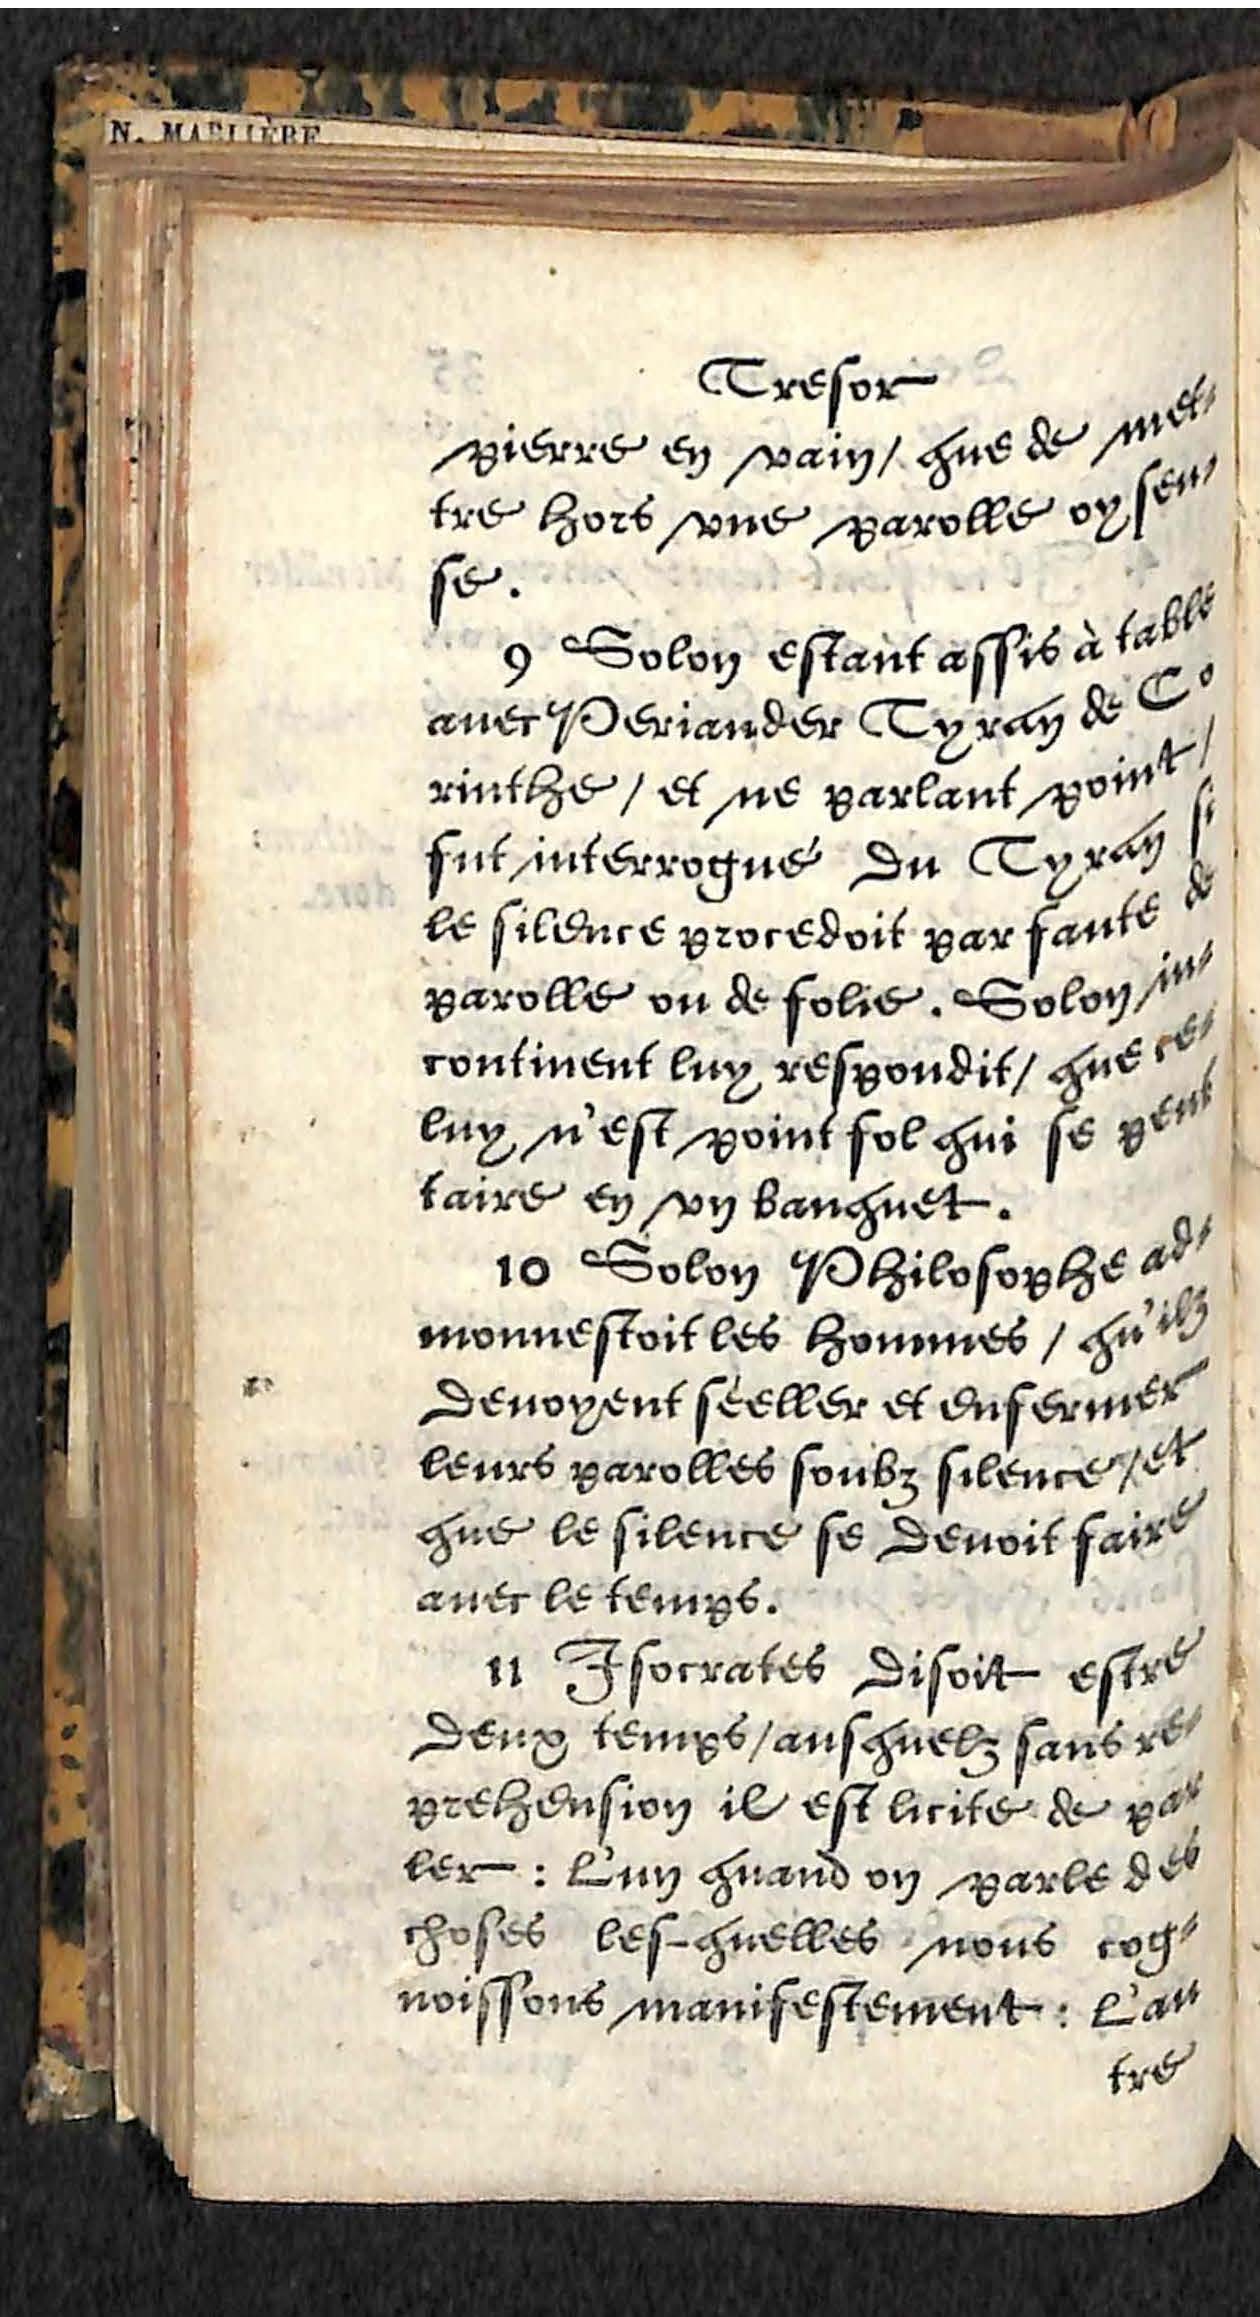 N. MARLIÈRE
Tresor
pierre en vain/ que de met-
tre hors vne parolle oyseu-
se.
9 Solon estant assis à table
auec Periander Tyran de Co
rinthe / et ne parlant point /
fut interrogué du Tyran si
le silence procedoit par faute de
parolle ou de folie. Solon in-
continent luy respondit/ que ce-
luy n'est point fol qui se peut
taire en vn banquet.
10 Solon Philosophe ad-
monnestoit les hommes / qu'ilz
deuoyent séeller et enfermer
leurs parolles soubz silence / et
que le silence se deuoit faire
auec le temps.
11 Isocrates disoit estre
deux temps/ausquelz sans re-
prehension il est licite de par
ler : L'un quand on parle des
choses les-quelles nous cog-
noissons manifestement : L'au
tre